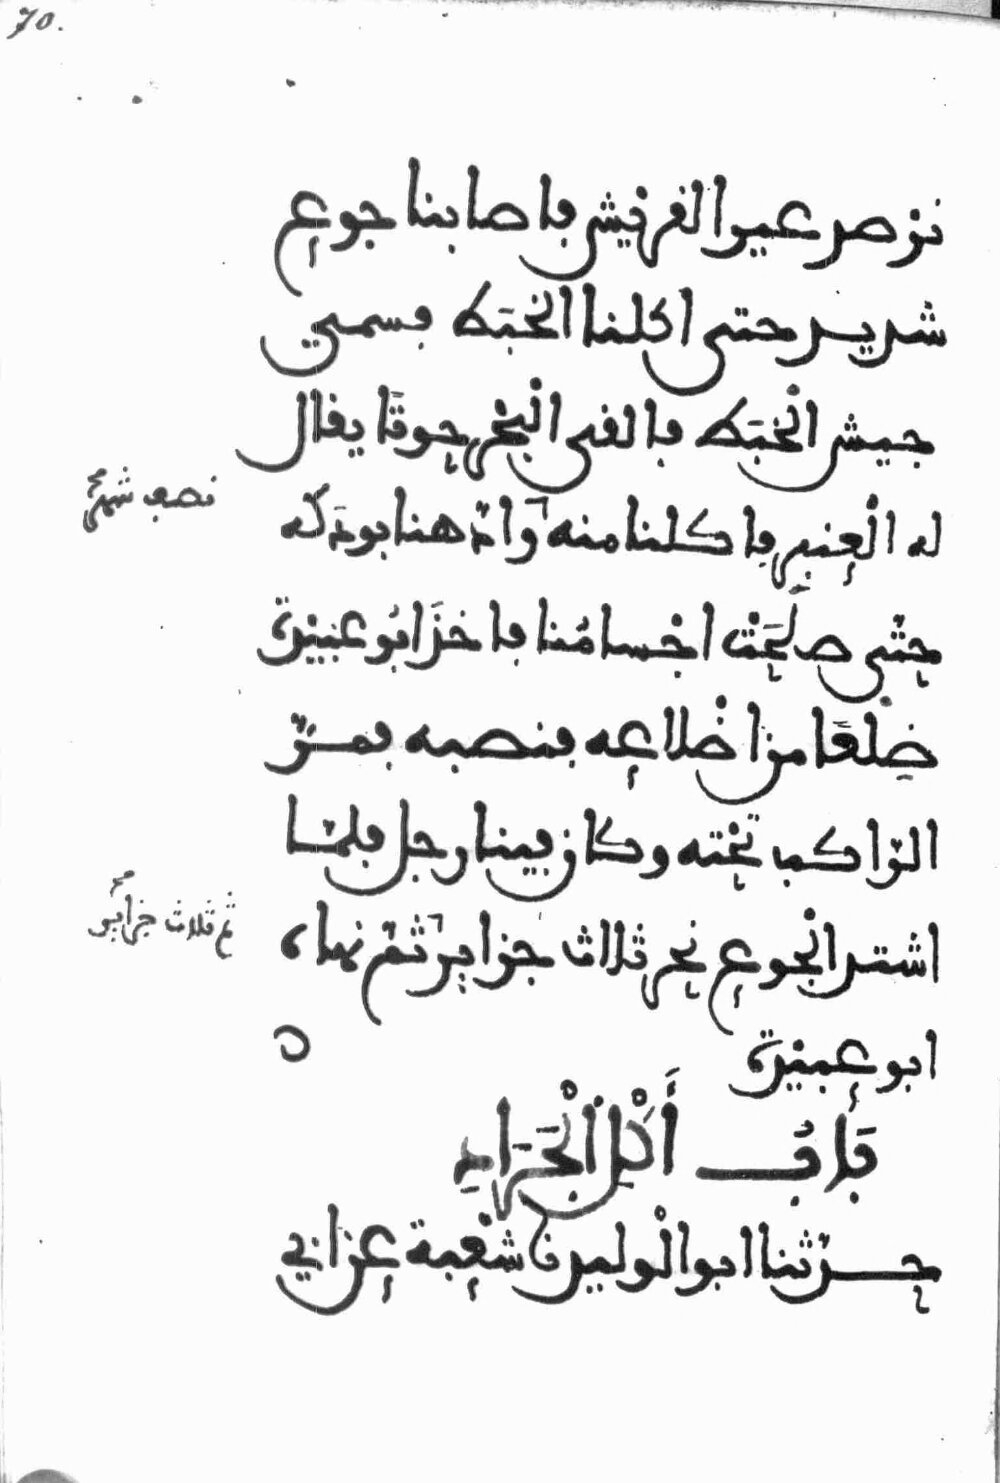 70.
نرصد عير القريش فاصابنا جوع
شديد حتى اكلنا الخبط فسمي
جيش الخبط فالقى البحر حوتا يقال
له العنبر فاكلنا منه وادهنا بودكه
نصف شهر
حتى صلحت اجسامنا فاخذ ابو عبيدة
ضلعا من اضلاعه فنصبه فمر
الراكب تحته وكان فينا رجل فلما
اشتد الجوع نحر ثلاث جزاير ثم نهاه
ثم ثلاث جزاير
ابو عبيدة
باب أكل الجراد
حدثنا ابو الوليد نا شعبة عن ابي